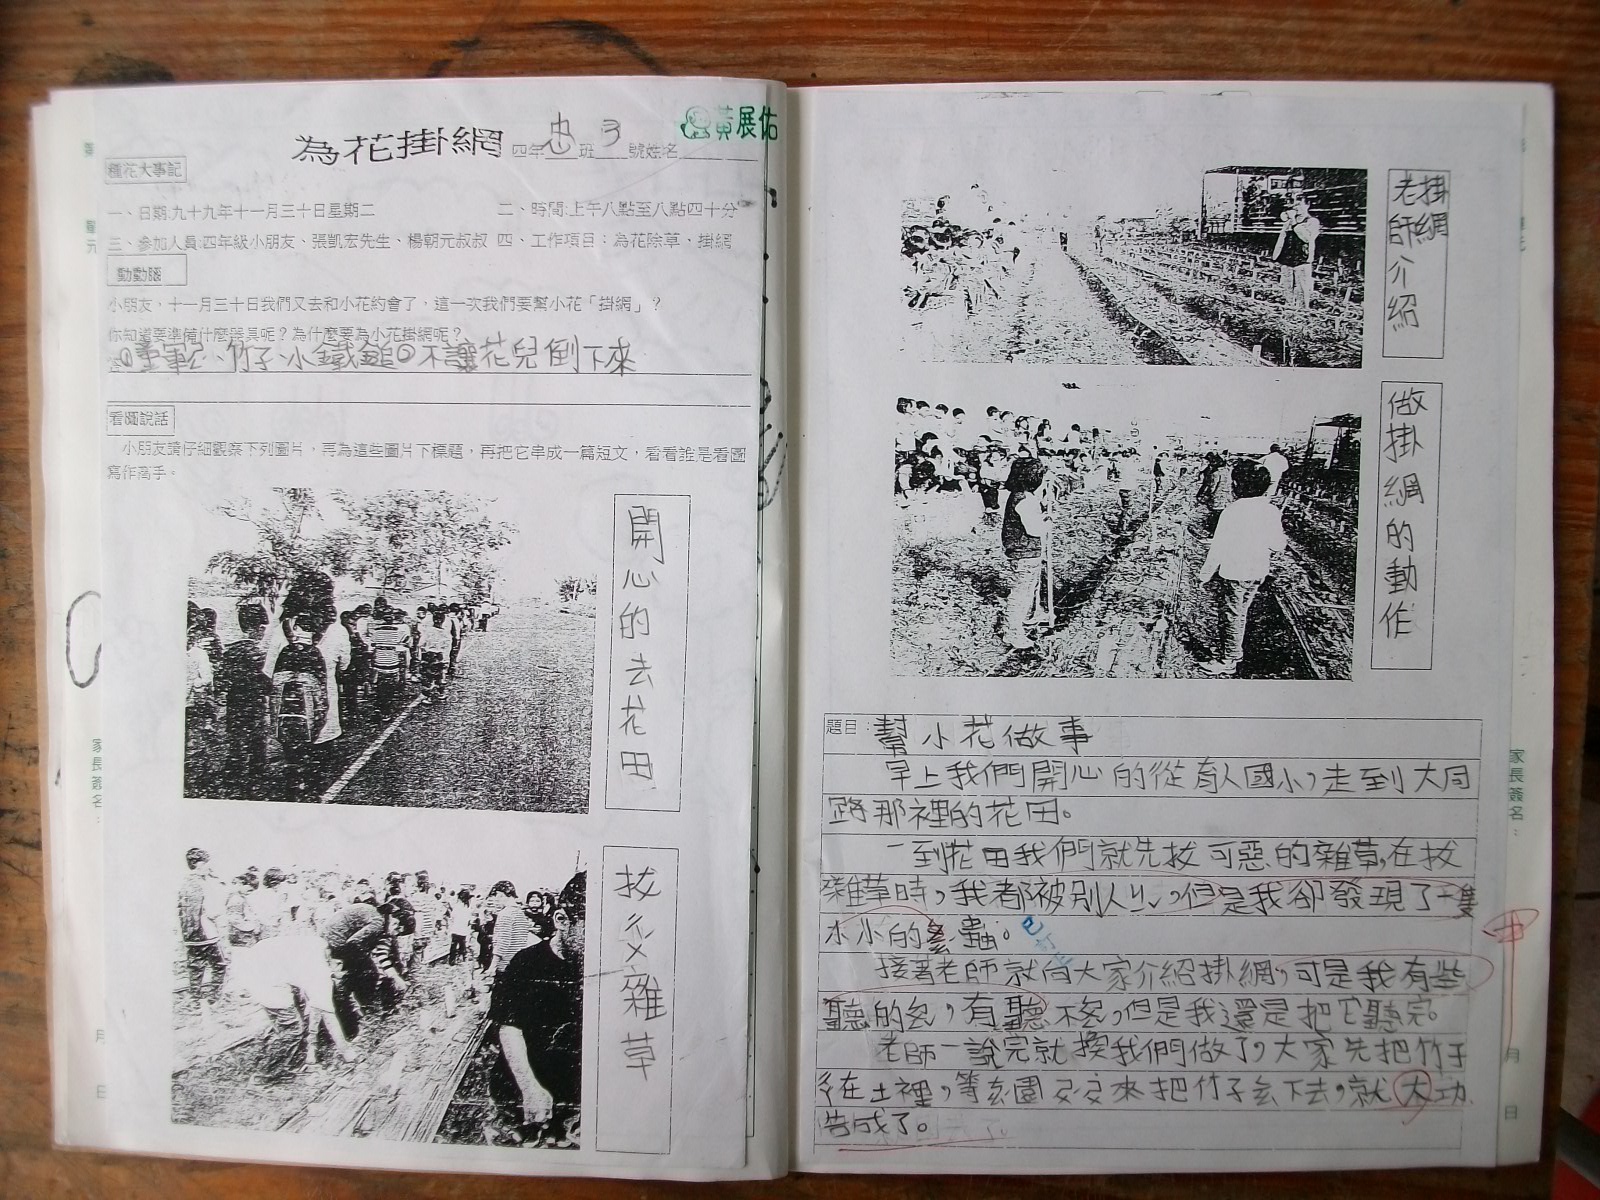 為花掛網 四年忠班3號姓名 黃展佑
種花大事記
一、日期:九十九年十一月三十日星期二 二、時間:上午八點至八點四十分
三、參加人員:四年級小朋友、張凱宏先生、楊朝元叔叔 四、工作項目:為花除草、掛網
動動腦
小朋友,十一月三十日我們又去和小花約會了,這一次我們要幫小花「掛網」?
你知道要準備什麼器具呢?為什麼要為小花掛網呢?
竹子、小鐵鎚 不讓花兒倒下來
看圖說話
小朋友請仔細觀察下列圖片,再為這些圖片下標題,再把它串成一篇短文,看看誰是看圖
寫作高手。
開心的去花田
拔ㄉㄨㄛ雜草
掛網
老師介紹
做掛網的動作
題目:幫小花做事
早上我們開心的從育人國小,走到大同
路那裡的花田。
一到花田我們就先拔可惡的雜草,在拔
雜草時,我都被別人ㄐㄧˇ,但是我卻發現了一隻
小小的蟲。
已訂正
接著老師就向大家介紹掛網,可是我有些
聽的ㄉㄨㄥˇ,有聽不ㄉㄨㄥˇ,但是我還是把它聽完。
老師一說完就換我們做了,大家先把竹子
在土裡,等
來把竹子
下去,就大功
告成了。
家長簽名:
月
日
家長簽名:
月
日
單元